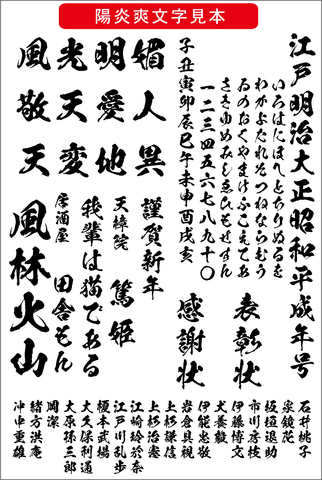 陽炎爽文字見本
江戸明治大正昭和平成年号
いろはにほへとちりぬるを
わかよたれそつねならむう
ゐのおくやまけふこえてあ
さきゆめみしゑひもせすん
一二三四五六七八九十〇
子丑寅卯辰巳午未申酉戌亥
表彰状
感謝状
媚人異
明愛地
光天変
風敬天
謹賀新年
天璋院
篤姫
我輩は猫である
居酒屋
田舎もん
風林火山
石井桃子
泉鏡花
板垣退助
市川房枝
伊藤博文
犬養毅
伊能忠敬
岩倉具視
上杉謙信
上杉治憲
江崎玲於奈
江戸川乱歩
榎本武揚
大久保利通
大原孫三郎
岡潔
緒方洪庵
沖中重雄